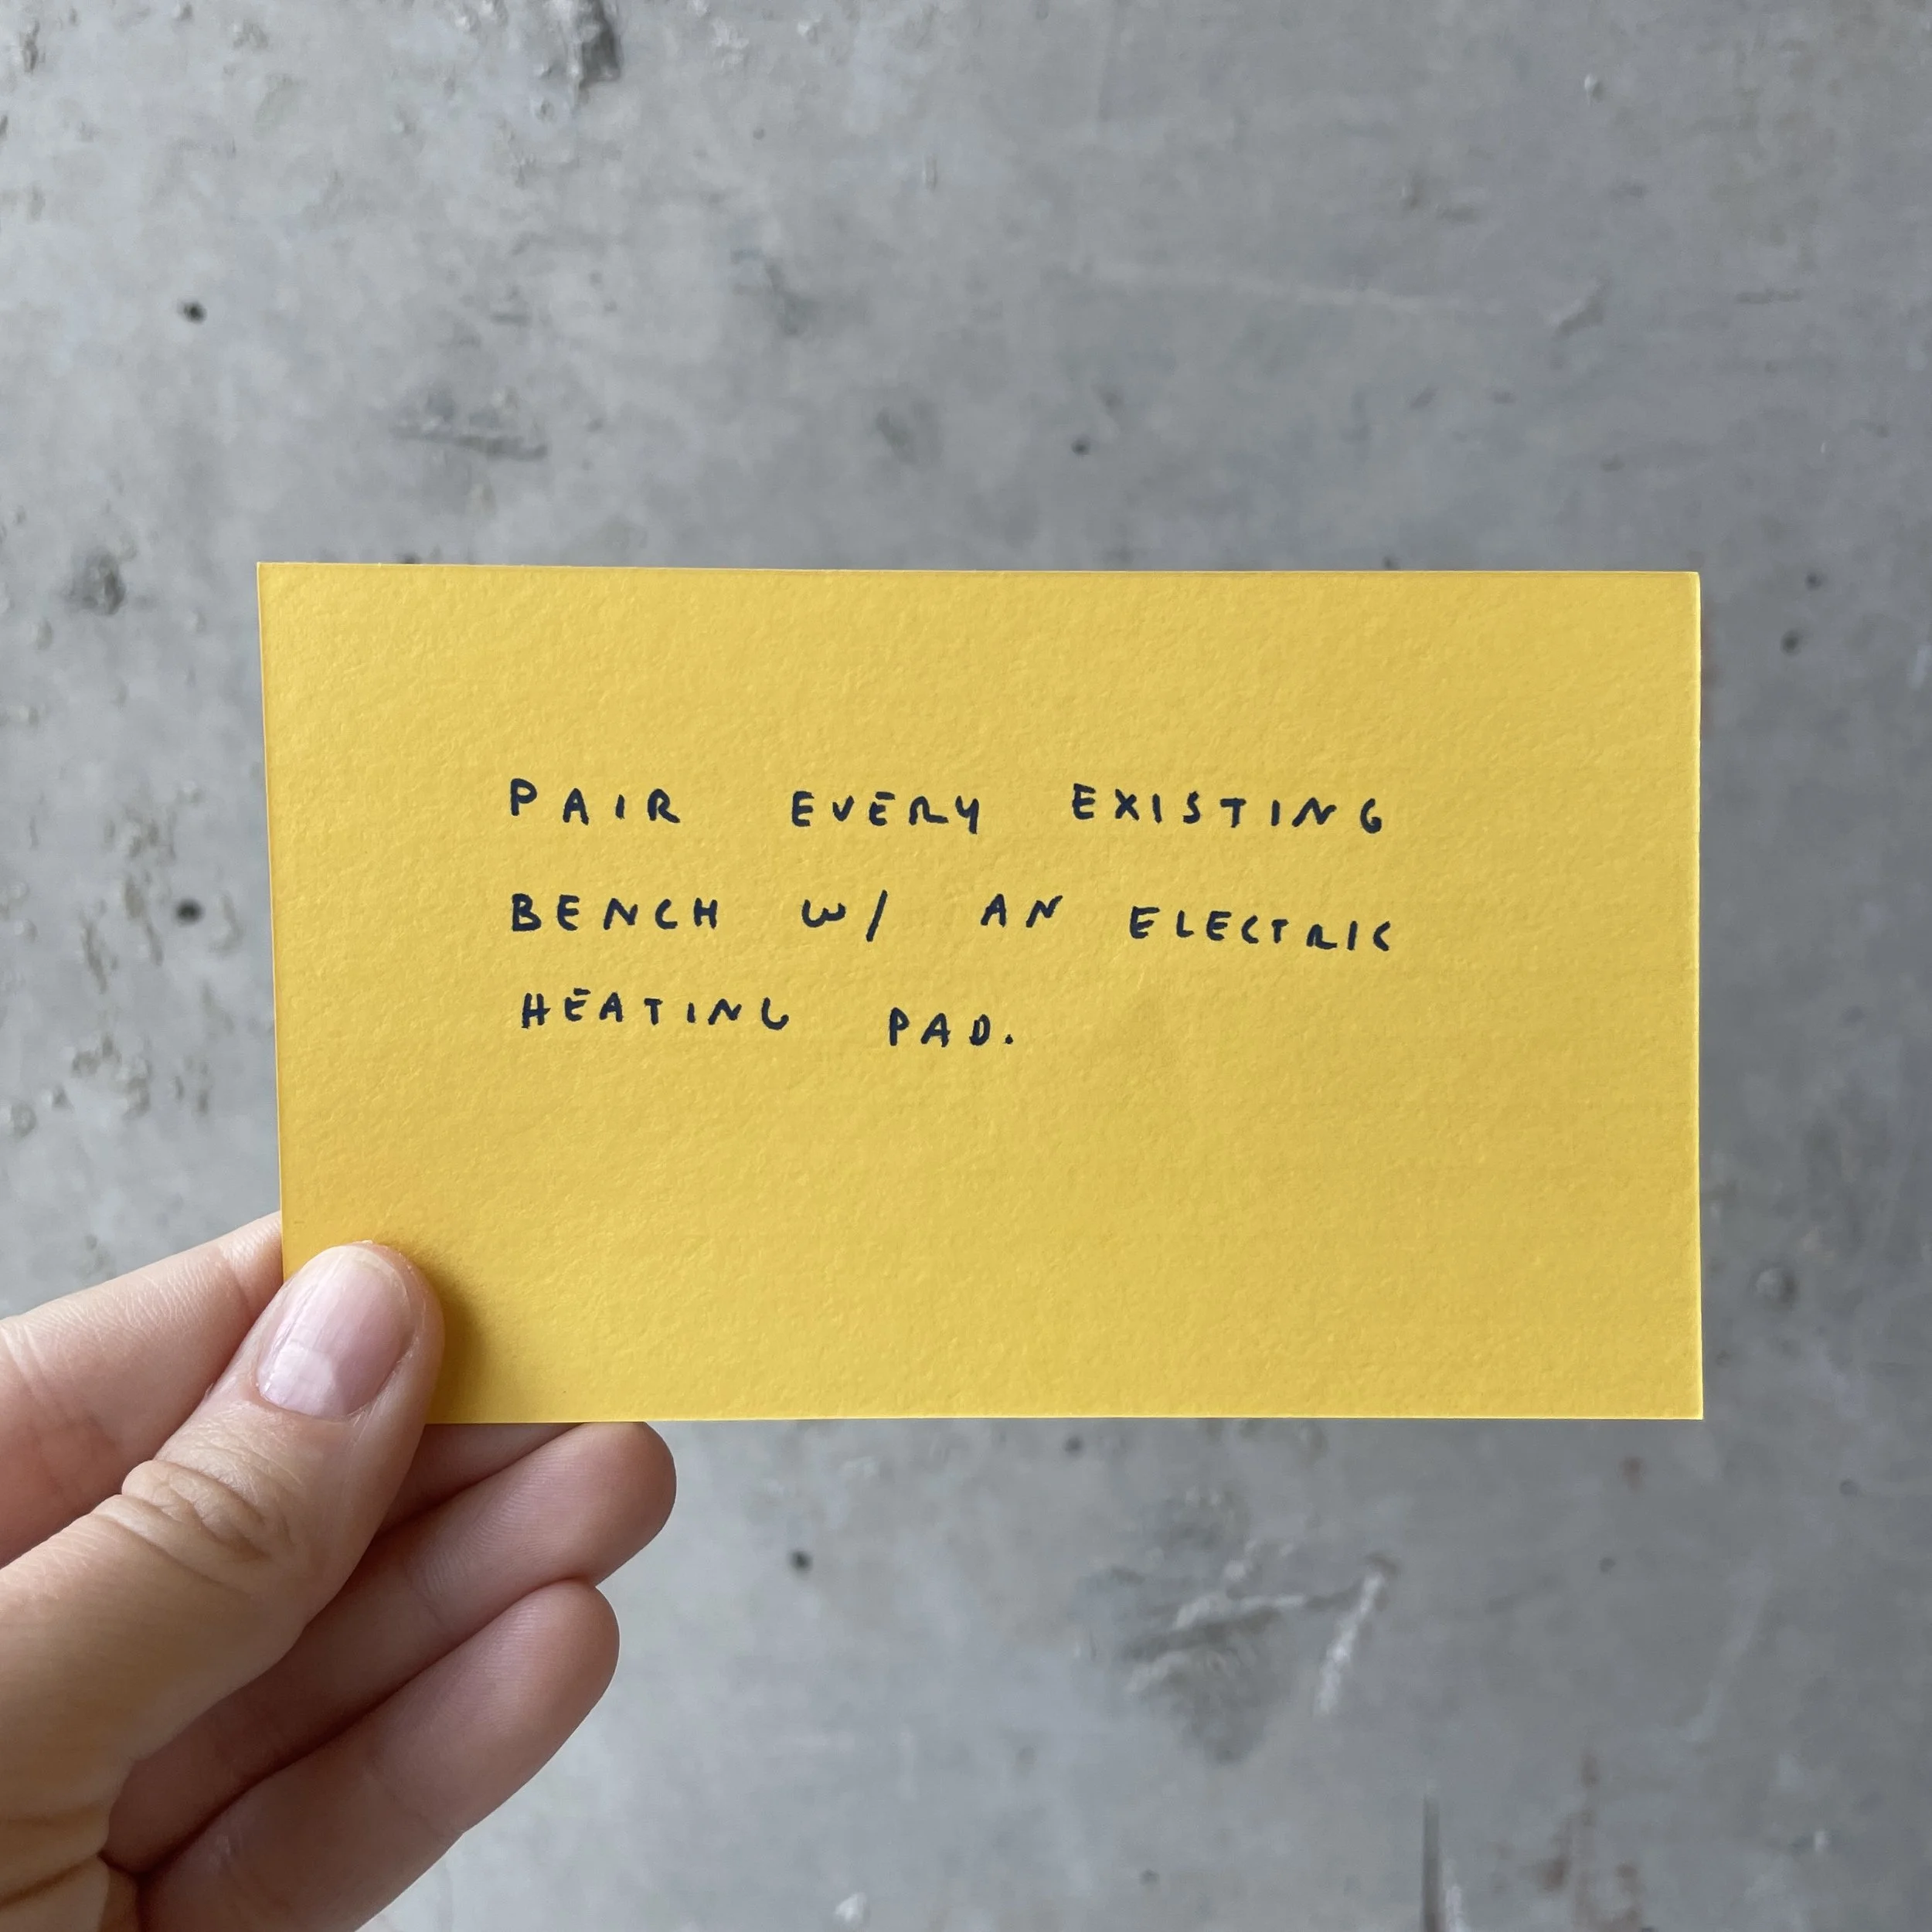 PAIR EVERY EXISTING
BENCH W/ AN ELECTRIC
HEATING PAD.